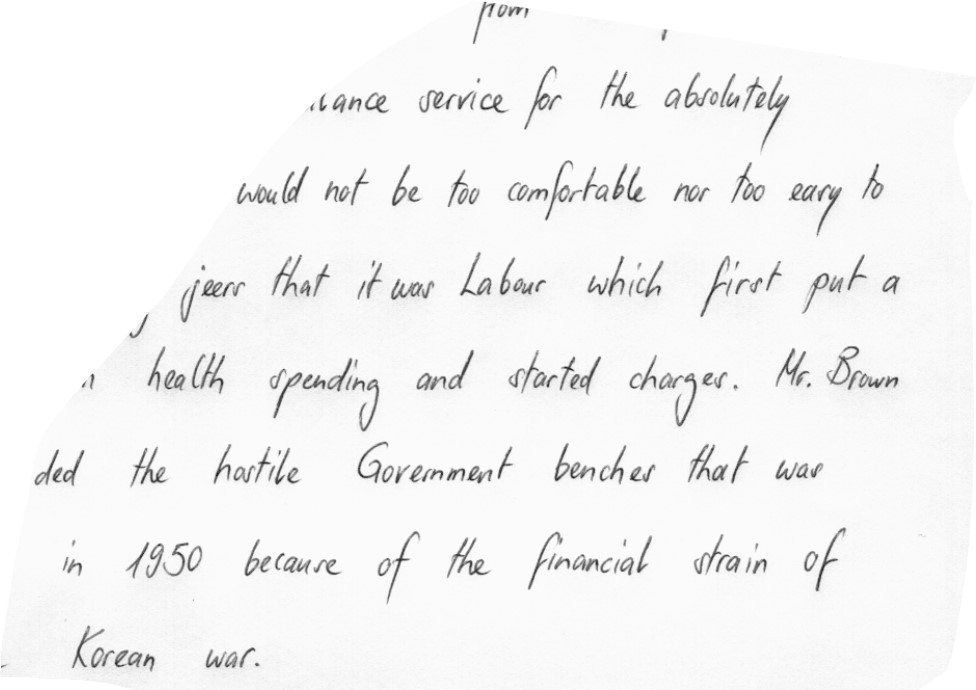 from
service for the absolutely
would not be too comfortable nor too easy to
jeers that it was Labour which first put a
health spending and started charges. Mr. Brown
ded the hostile Government benches that was
in 1950 because of the financial strain of
Korean war.